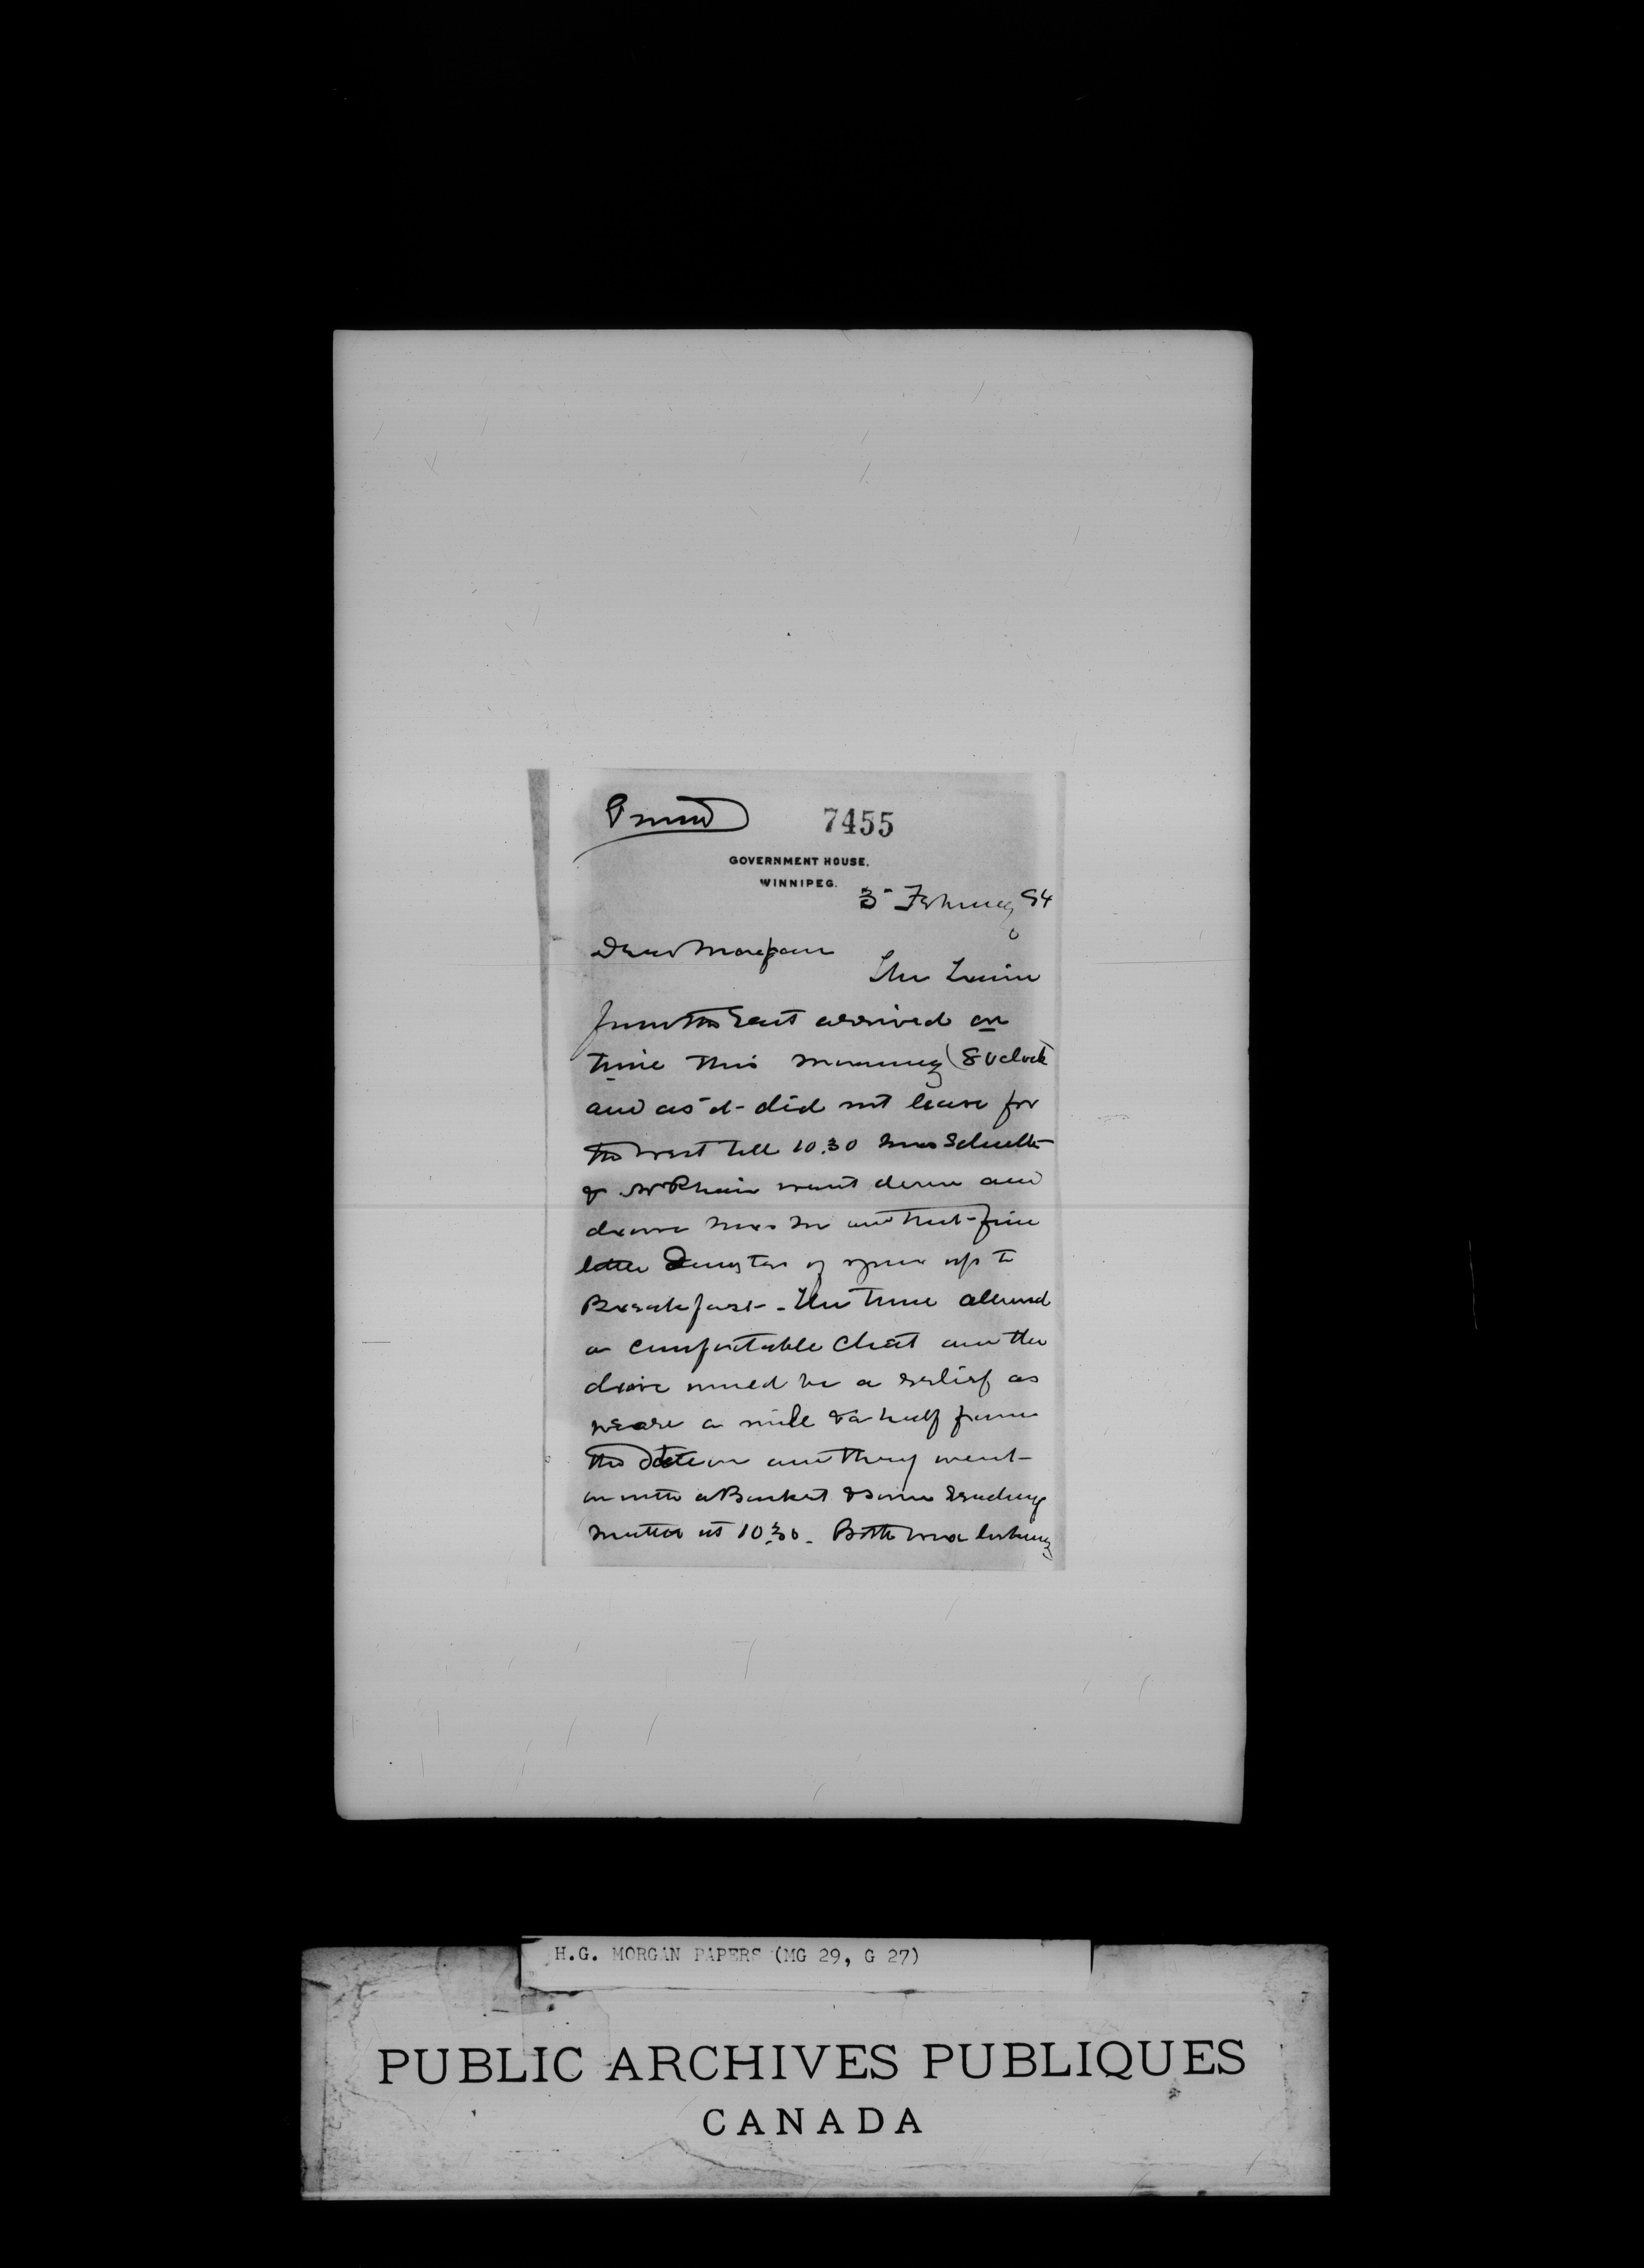 Private
7455
GOVERNMENT HOUSE.
WINNIPEG.
3 February 94
Dear Morgan
The Train
from the East arrived on
time this morning (8 oclock
and as it did not leave for
the west till 10.30 Mrs Schultz
& went down and
drove Mrs M and that fine
little Youngster of yours up to
Breakfast - The time allowed
a comfortable chat and the
drive would be a relief as
we are a mile & a half from
the Station and they went
on with a Basket & some reading
matter at 10.30. Both were looking
H.G. MORGAN PAPERS (MG 29, G 27)
PUBLIC ARCHIVES PUBLIQUES
CANADA